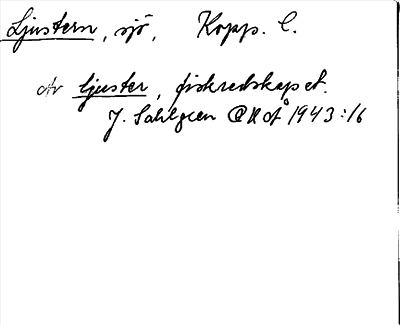 Ljustern, sjö, Kopp. l.
Av ljuster, fiskredskapet.
J. Sahlgren ORoÅ 1943:16